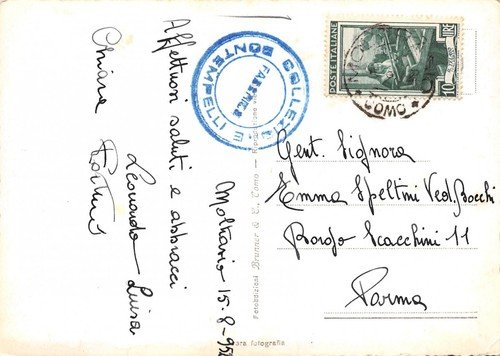 Affettuosi saluti e abbracci
Leonardo Luisa
Chiara
Moltrasio 15-8-95
COLLEZ
E
BONTEMPELLI
FABERI
POSTE ITALIANE
LIRE
10
COMO
Gent. Signora
Emma Speltini Ved. Bocchi
Borgo Scacchini 11
Parma
Fotoedizioni Brunner & C. Como - Riproduzione
vera fotografia